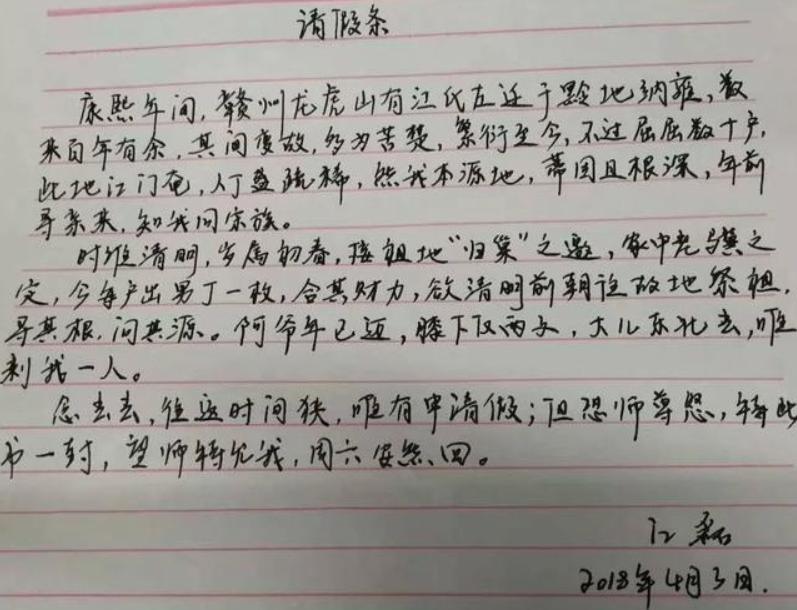 请假条
康熙年间，赣州龙虎山有江氏左迁于黔地纳雍，数
来百年有余，其间变故，多为苦楚，繁衍至今，不过屈屈数十户，
此地江门奄，人丁显疏稀，然我本源地，蒂固且根深，年前
寻亲来，知我同宗族。
时维清明，岁属初春，接祖地“归巢”之邀，家中老与冀之
定，今每户出男丁一枚，合其财力，欲清明前朝往故地祭祖，
寻其根，问其源。阿爷年已迈，膝下仅两子，大儿东北去，唯
剩我一人。
念去去，往返时间狭，唯有申请假；但恐师尊怒，特此
书一封，望师特允我，周六安然回。
江磊
2018年4月3日.